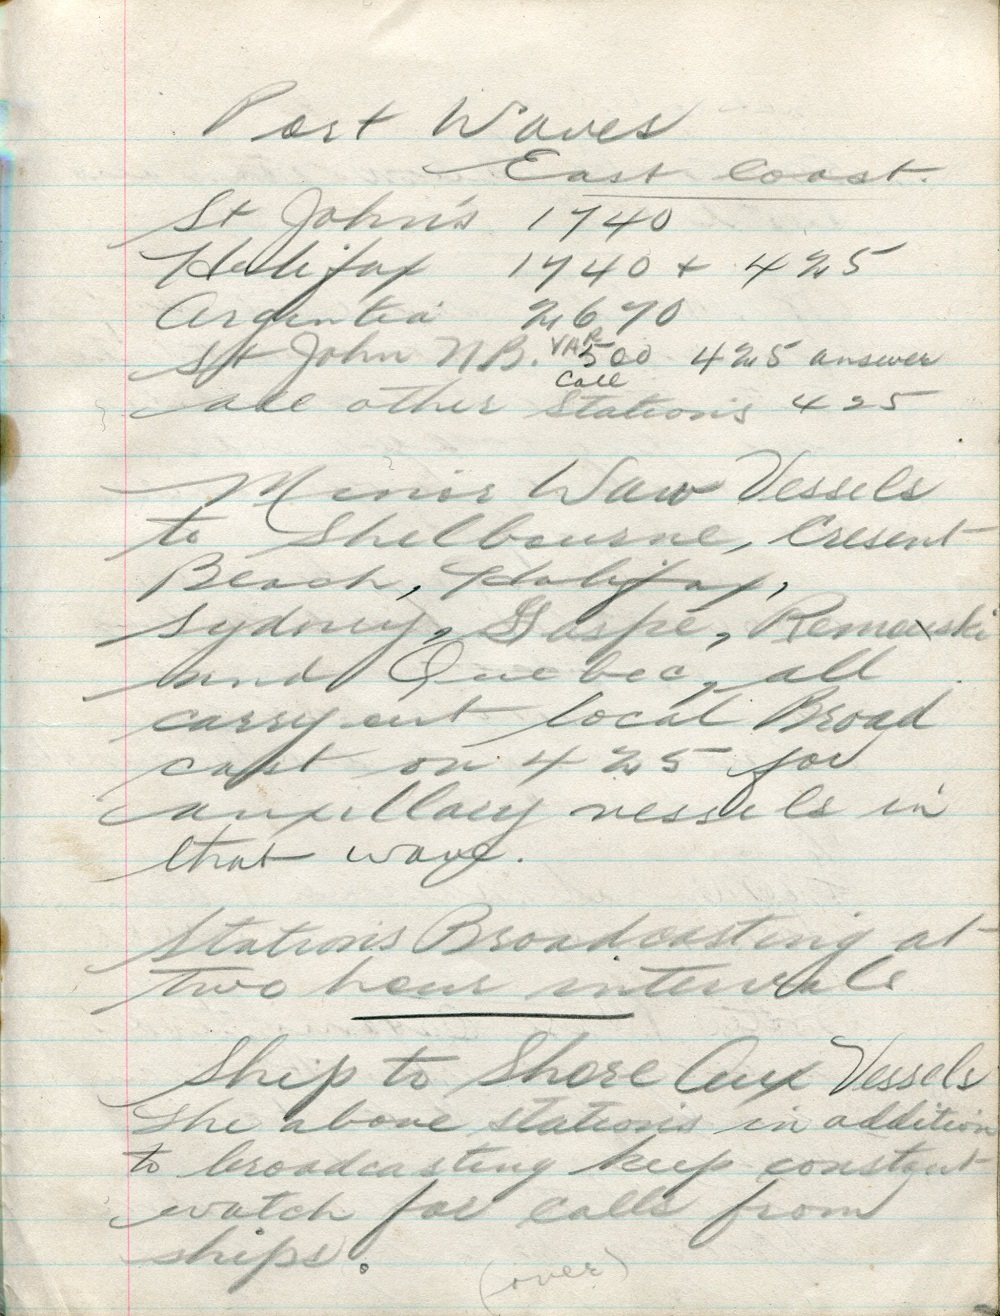 Port Waves
East Coast.
St John's 1740
Halifax 1740 + 425
Argentia 2670
St John NB. VAR 500 425 answer
Call
all other Stations 425
Minor War Vessels
to Shelbourne, Cresent
Beach, Halifax,
Sydney, Gaspe, Remouski
and Quebec, all
carry out local Broad
cast on 425 for
auxillary vessels in
that wave.
Stations Broadcasting at
two hour intervals
Ship to Shore Aux Vessels
The above stations in addition
to broadcasting keep constant
watch for calls from
ships.
(over)